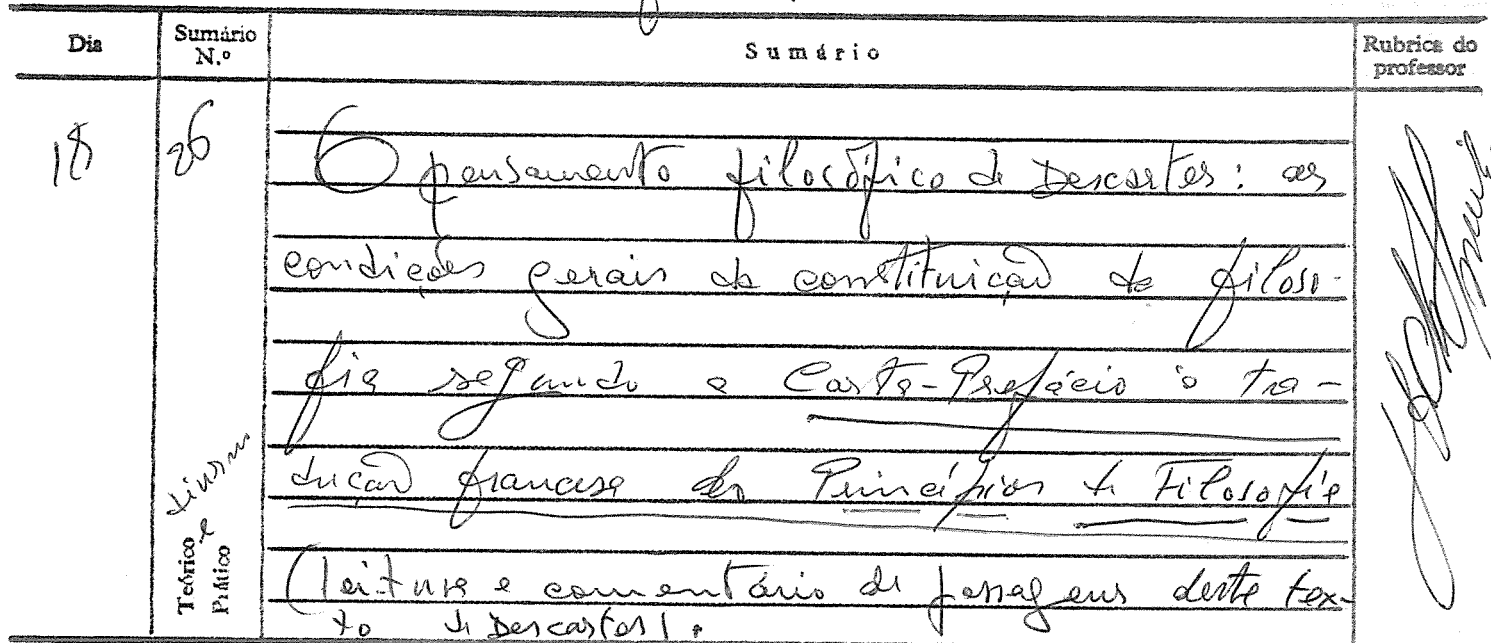 Dia Sumário N.º Sumário Rubrica do professor
18 26 O pensamento filosófico de Descartes: as
condições gerais da constituição da filoso-
fia segundo a Carta-Prefácio à tra-
dução francesa dos Princípios de Filosofia
(leitura e comentário de passagens deste tex-
to de Descartes).
Teórico e
Prático